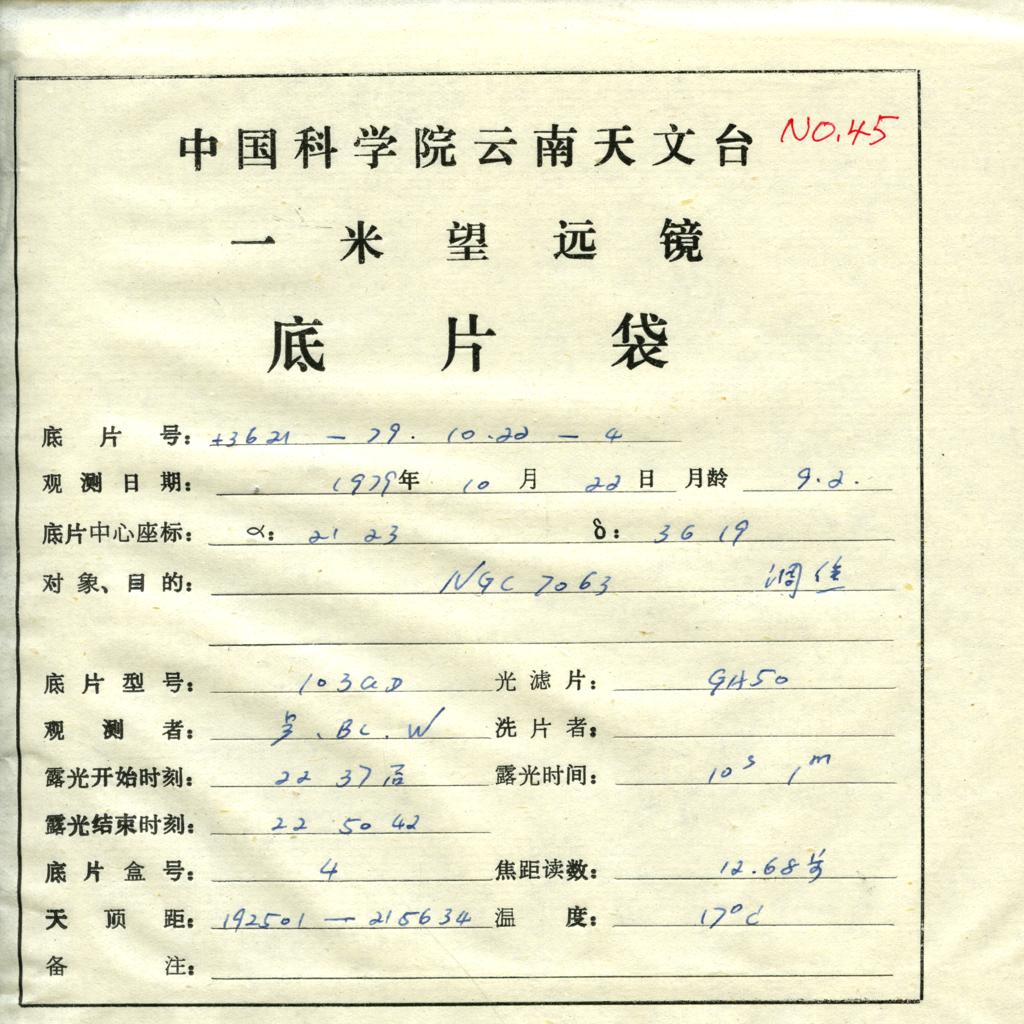 中国科学院云南天文台 NO.45
一米望远镜
底片袋
底片号: +3621 — 79.10.22 — 4
观测日期: 1979年 10月 22日 月龄 9.2.
底片中心座标: α: 21 23 δ: 36 19
对象、目的: NGC 7063 调焦
底片型号: 103aD 光滤片: GG450
观测者: . BC. W 洗片者:
露光开始时刻: 22 37 露光时间: 10s 1m
露光结束时刻: 22 50 42
底片盒号: 4 焦距读数: 12.68
天顶距: 192501 — 215634 温度: 17°C
备注: